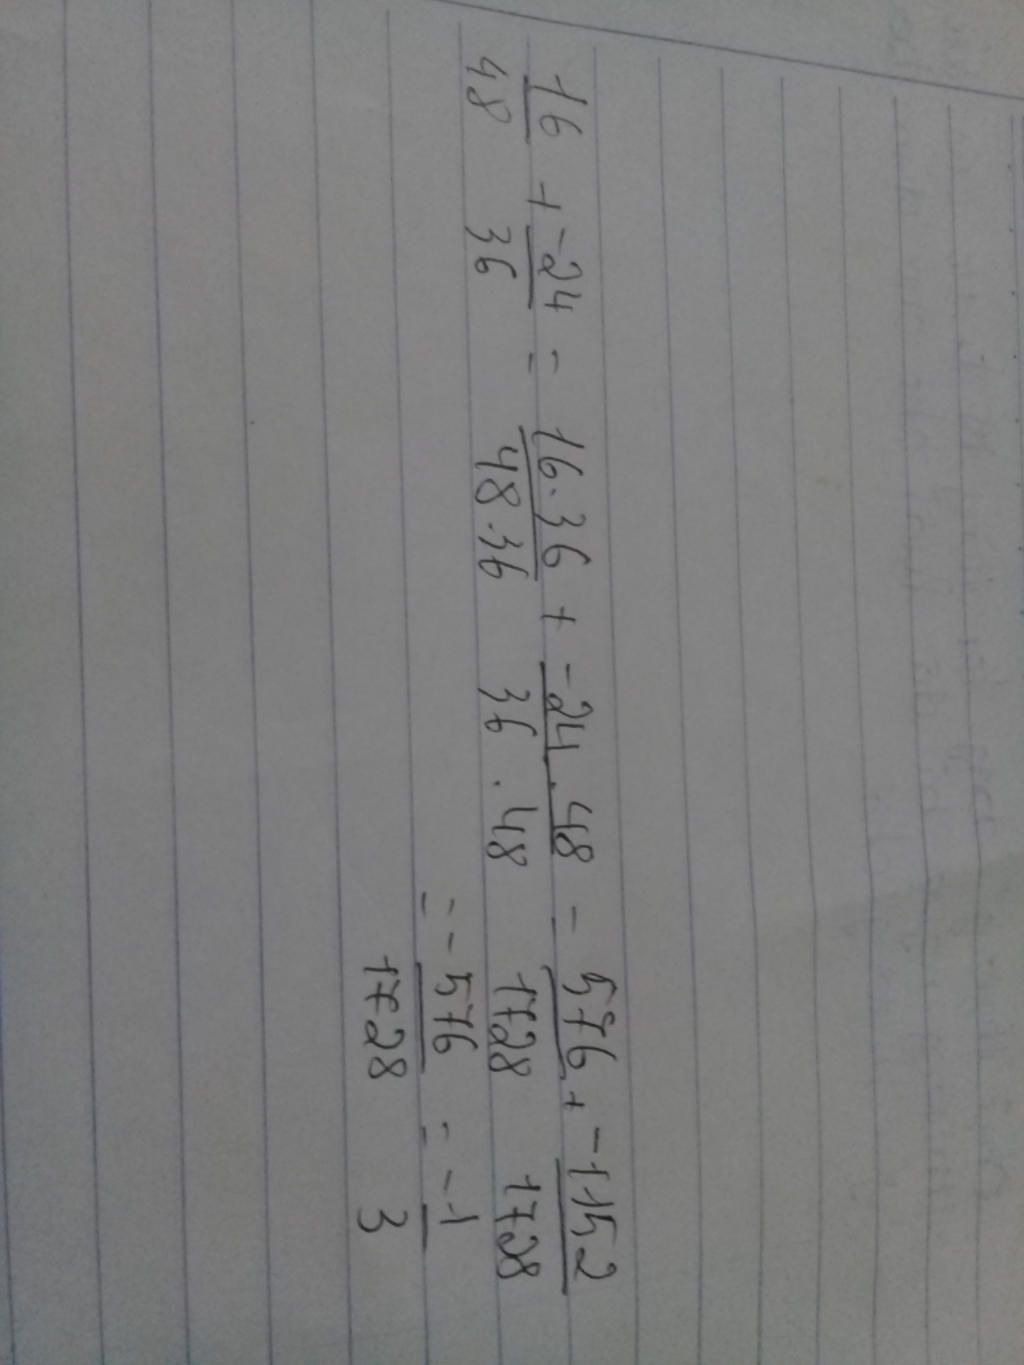 16/48 + -24/36 = 16.36/48.36 + -24.48/36.48 = 576/1728 + -1152/1728
= -576/1728 = -1/3